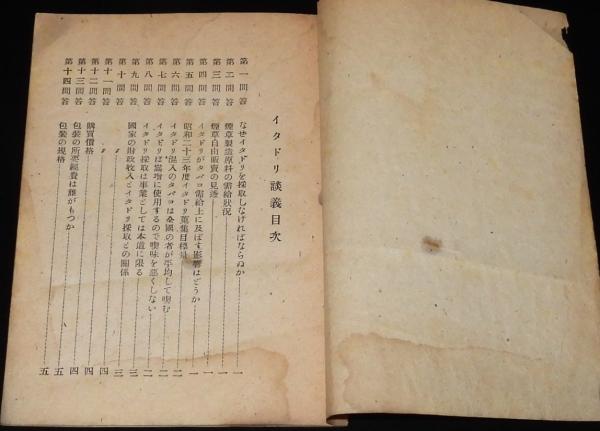 イタドリ談義目次
第一問答 なぜイタドリを採取しなければならぬか 一
第二問答 煙草製造原料の需給状況 一
第三問答 煙草自由販売の見透 一
第四問答 イタドリがタバコ需給上に及ぼす影響はどうか 一
第五問答 昭和二十三年度イタドリ蒐集目標量 一
第六問答 イタドリ混入のタバコは全国の者が平均して喫む 二
第七問答 イタドリは為増に使用するので喫味を悪くしない 二
第八問答 イタドリ採取は事業としては本道に限る 二
第九問答 国家の財政収入とイタドリ採取との関係 三
第十問答 〃 三
第十一問答 〃 四
第十二問答 購買価格 四
第十三問答 包装の所要経費は誰がもつか 五
第十四問答 包装の規格 五